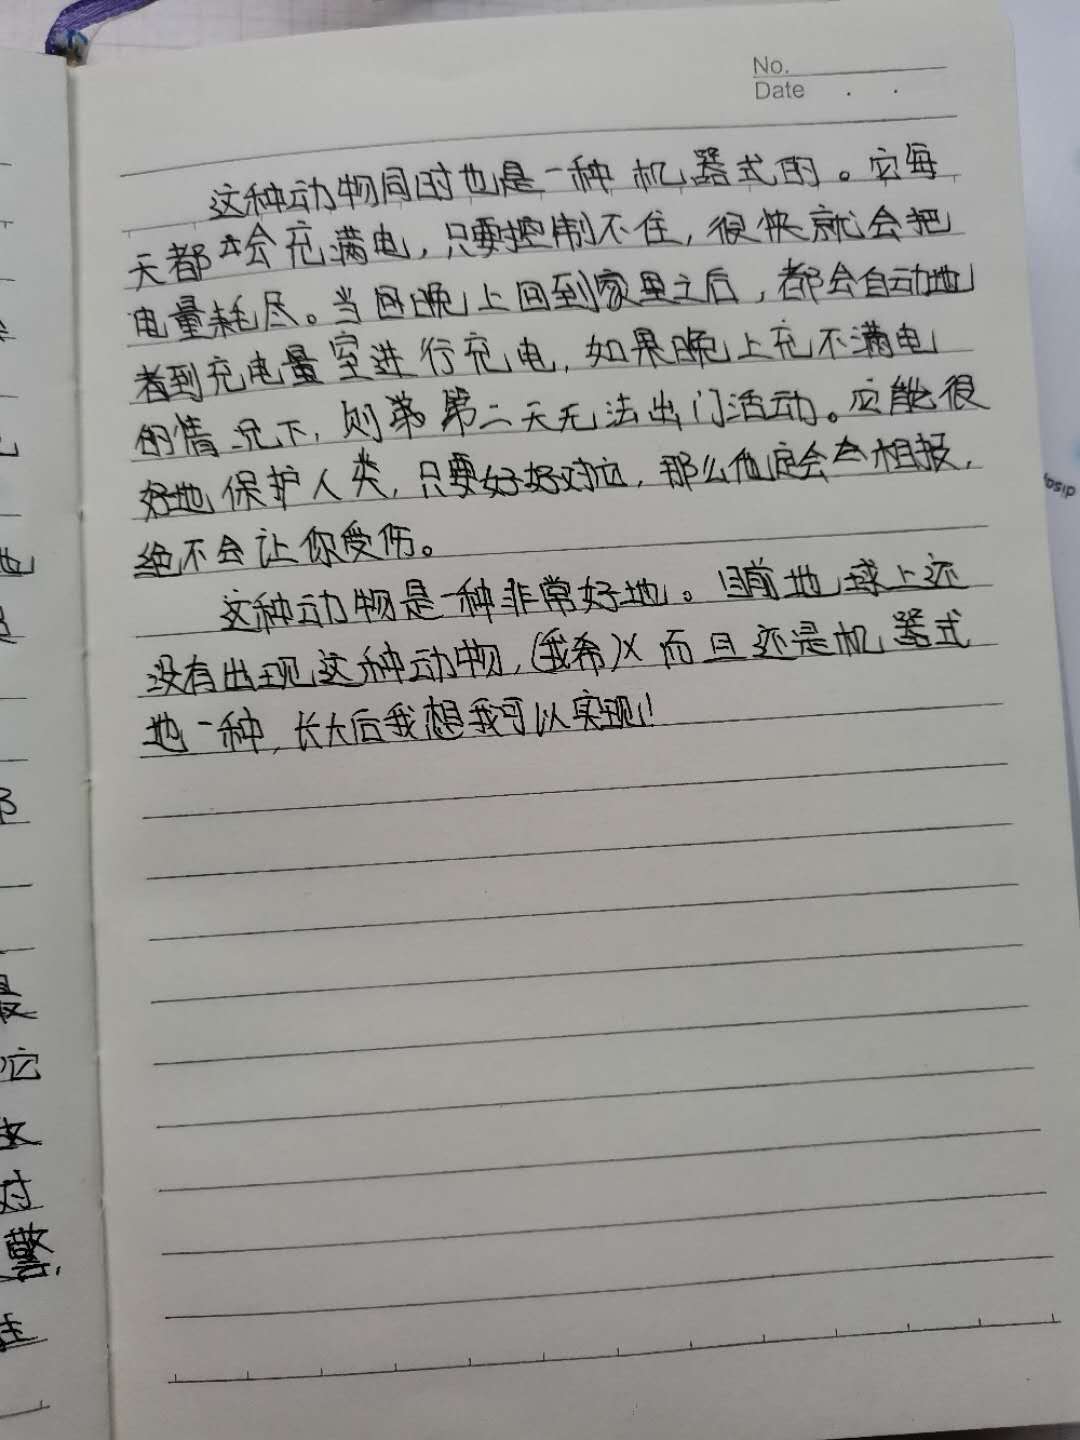 No.
Date
这种动物同时也是一种机器式的。它每
天都会充满电，只要控制不住，很快就会把
电量耗尽。当晚上回到家里之后，都会自动地
看到充电量室进行充电，如果晚上充不满电
的情况下，则第二天无法出门活动。它能很
好地保护人类，只要好好对应，那么他定会相报，
绝不会让你受伤。
这种动物是一种非常好地。目前地球上还
没有出现这种动物，(我希)X而且还是机器式
地一种，长大后我想我可以实现！
它
对
警